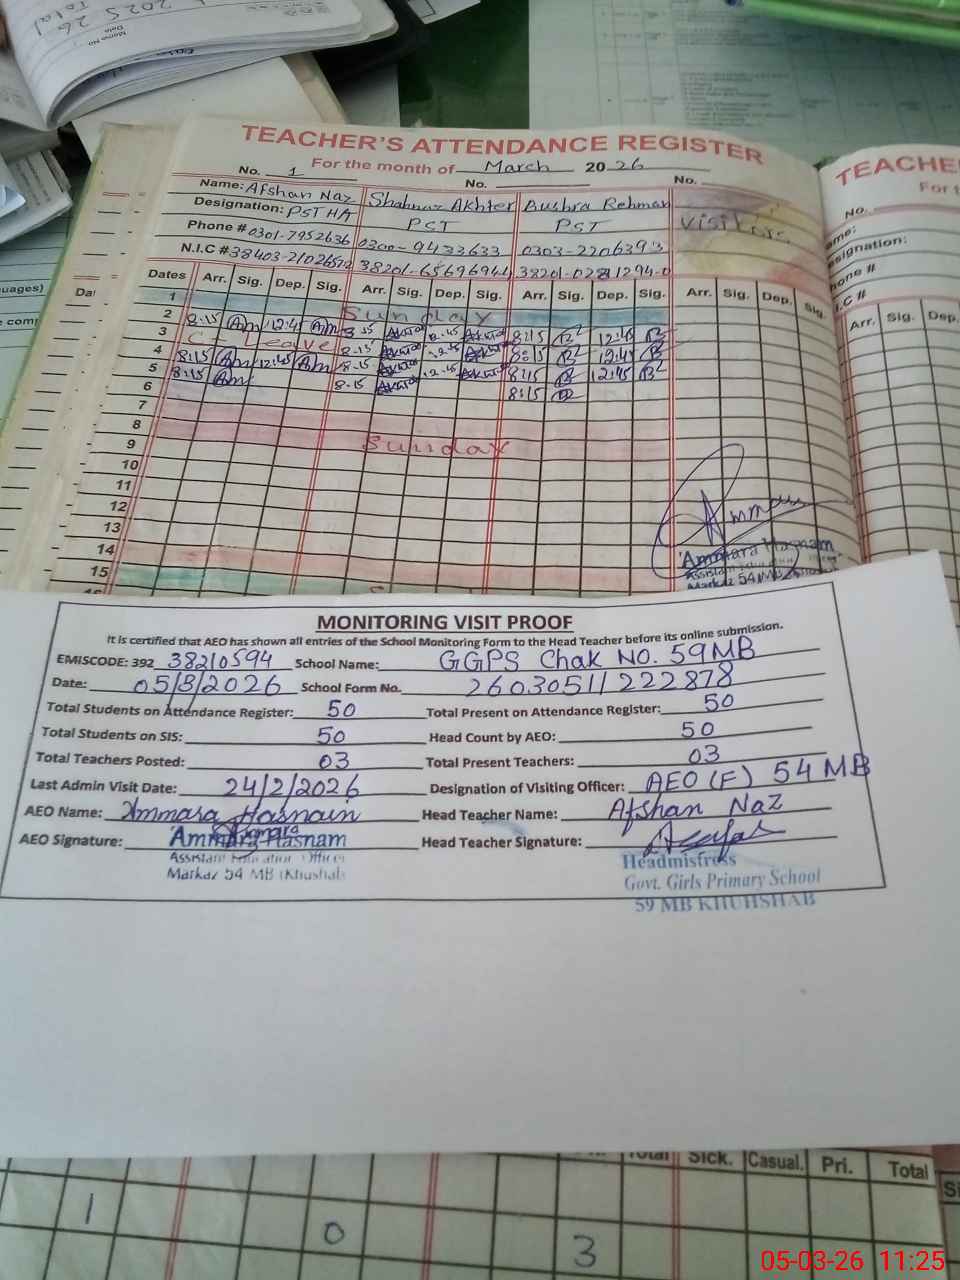 2025 26
Total
Memo No.
Date
TEACHER'S ATTENDANCE REGISTER
For the month of March 2026
No. 1 No. No.
Name: Afshan Naz Shahnaz Akhter Bushra Rehman
Designation: PST HA PST PST Visitors
Phone # 0301-7952636 0300-9433633 0303-2206393
N.I.C # 38201-6569694 38201-0281294-0
Dates Arr. Sig. Dep. Sig. Arr. Sig. Dep. Sig. Arr. Sig. Dep. Sig. Arr. Sig. Dep. Sig.
1 Sunday
2 8:15 Am 12:45 Am 8:15 Akhter 12:45 Akhter 8:15 B 12:45 B
3 C - Leave 8:15 Akhter 12:45 Akhter 8:15 B 12:45 B
4 8:15 Am 12:45 Am 8:15 Akhter 12:45 Akhter 8:15 B 12:45 B
5 8:15 Am 8:15 Akhter 8:15 B
6
7
8 Sunday
9
10
11
12
13
14
15
Ammara Hasnam
Markaz 54 MB
TEACHE
No.
Arr. Sig.
MONITORING VISIT PROOF
It is certified that AEO has shown all entries of the School Monitoring Form to the Head Teacher before its online submission.
EMISCODE: 392 38210594 School Name: GGPS Chak NO. 59MB
Date: 05/3/2026 School Form No. 26030511222878
Total Students on Attendance Register: 50 Total Present on Attendance Register: 50
Total Students on SIS: 50 Head Count by AEO: 50
Total Teachers Posted: 03 Total Present Teachers: 03
Last Admin Visit Date: 24/2/2026 Designation of Visiting Officer: AEO (F) 54 MB
AEO Name: Ammara Hasnain Head Teacher Name: Afshan Naz
AEO Signature: Ammara Hasnam Head Teacher Signature:
Assistant Education Officer
Markaz 54 MB (Khushab
Headmistress
Govt. Girls Primary School
59 MB KHUHSHAB
Total Sick. Casual. Pri. Total
1 0 3
05-03-26 11:25